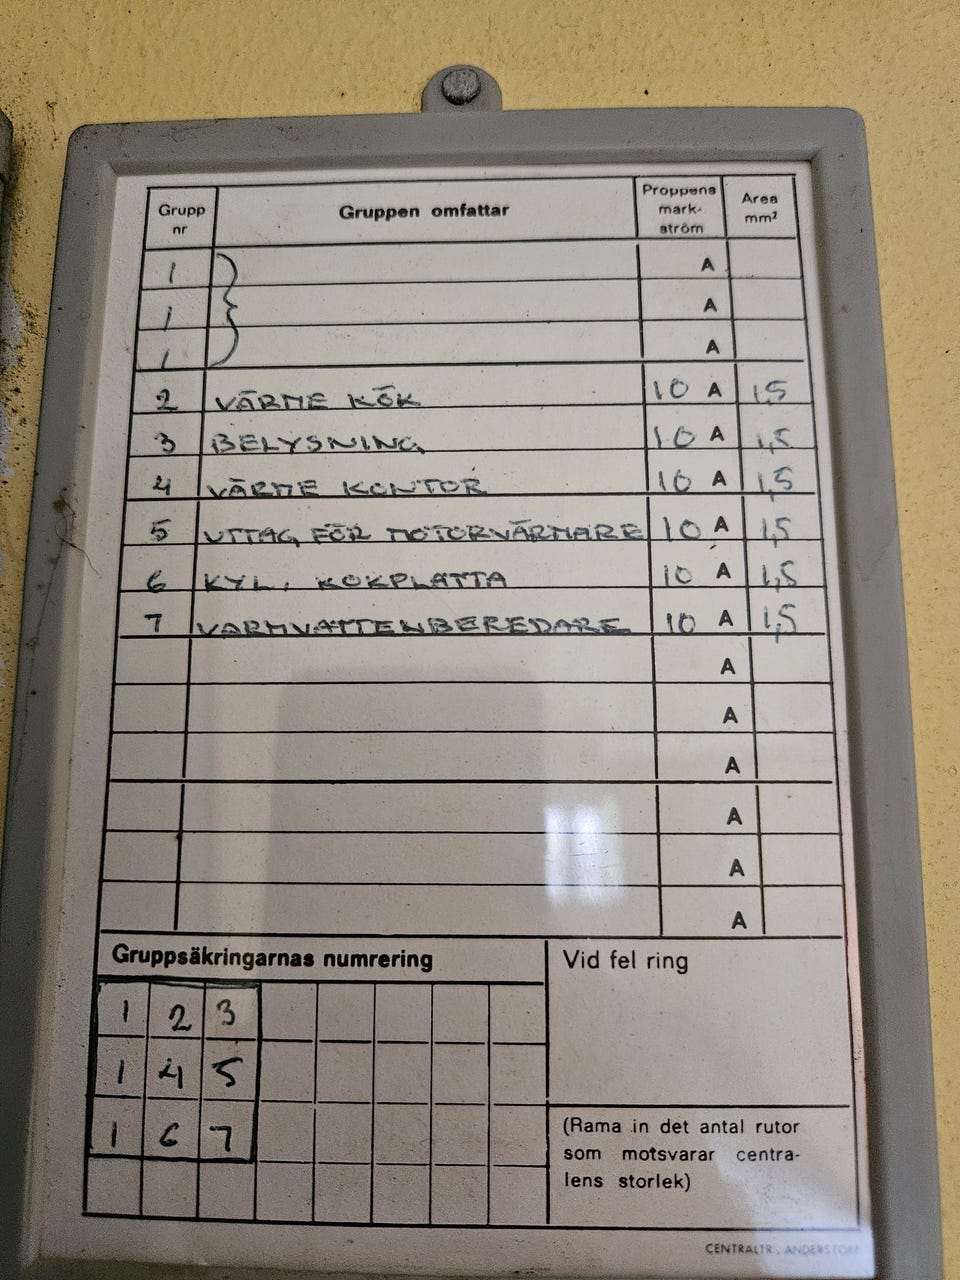 Grupp nr Gruppen omfattar Proppens mark- ström Area mm²
1 A
1 A
1 A
2 VÄRME KÖK 10 A 1,5
3 BELYSNING 10 A 1,5
4 VÄRME KONTOR 10 A 1,5
5 UTTAG FÖR MOTORVÄRMARE 10 A 1,5
6 KYL, KOKPLATTA 10 A 1,5
7 VARMVATTENBEREDARE 10 A 1,5
A
A
A
A
A
A
Gruppsäkringarnas numrering
1 2 3
1 4 5
1 6 7
Vid fel ring
(Rama in det antal rutor
som motsvarar centra-
lens storlek)
CENTRALTR., ANDERSTORP